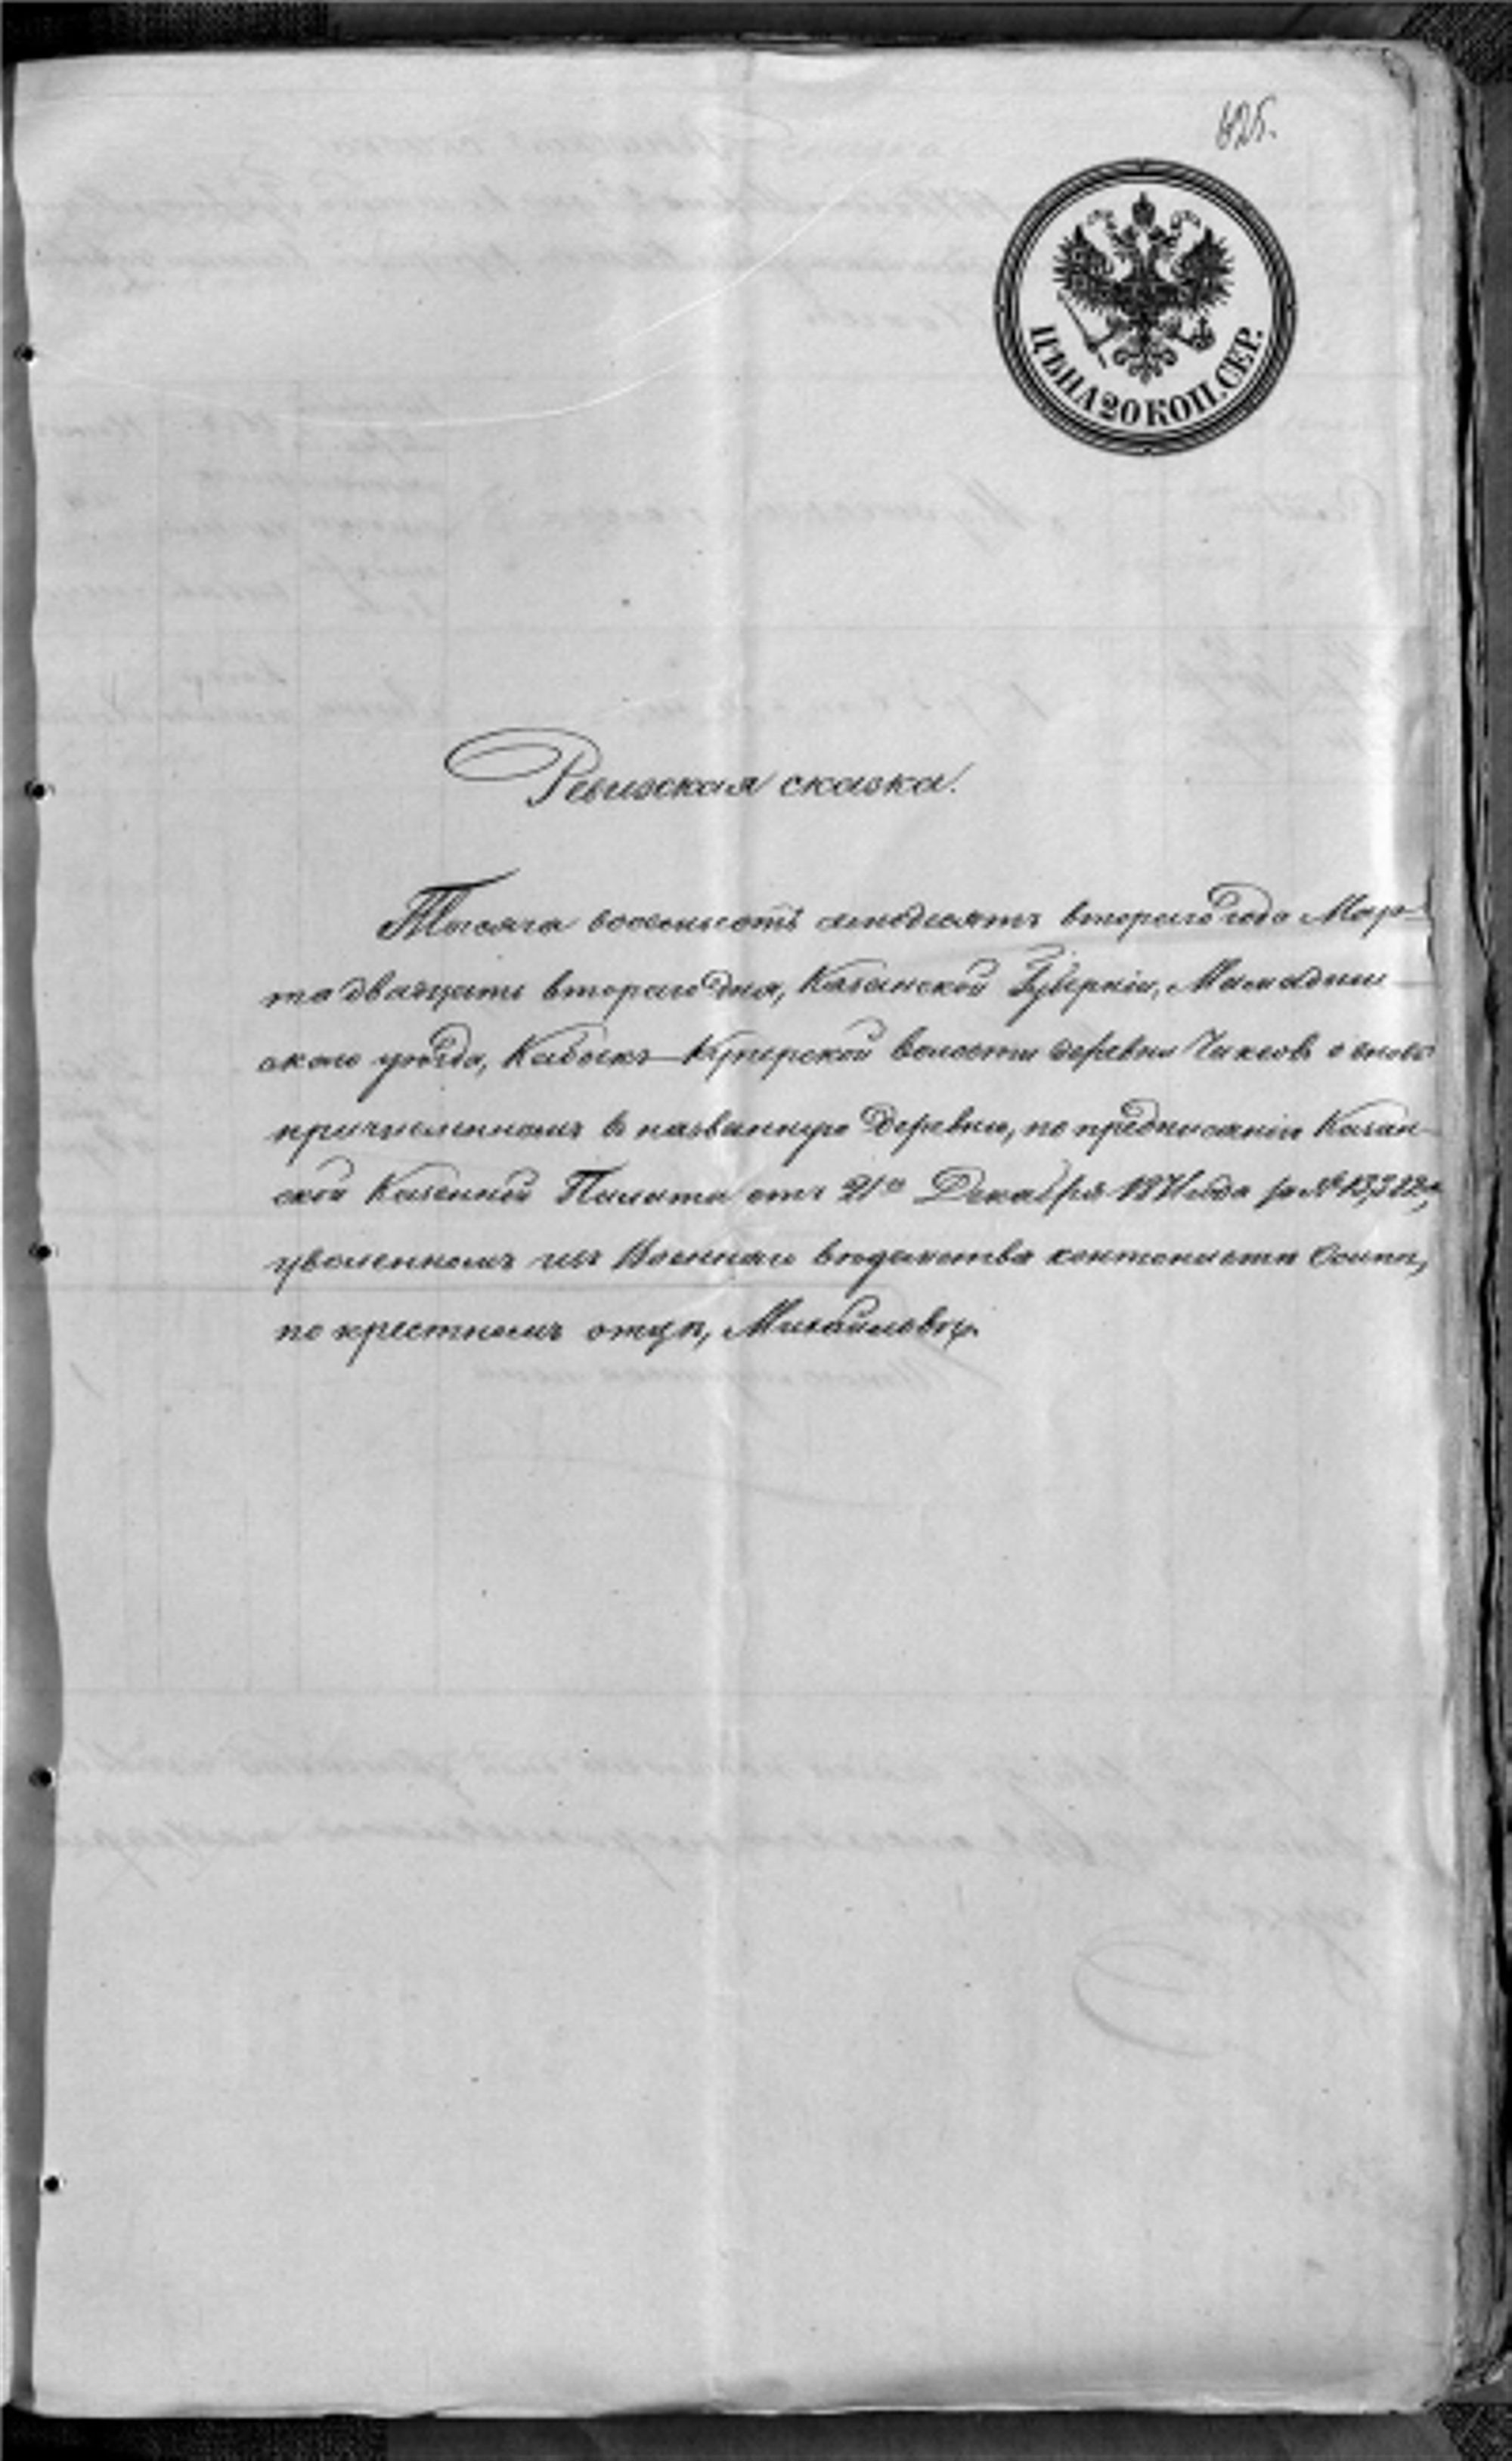 625.
ЦѢНА 20 КОП. СЕР.
Ревизская сказка.
Тысяча восемьсотъ семьдесятъ втораго года Мар-
та двадцать втораго дня, Казанской Губерніи, Мамадыш-
скаго уѣзда, Кабыкъ-Куперской волости деревни Чиксов о вновь
причисленномъ въ названную деревню, по предписанію Казан-
ской Казенной Палаты отъ 21го Декабря 1871 года за №
уволенномъ изъ Военнаго вѣдомства кантонистѣ Осипѣ,
по крестномъ отцѣ, Михайловѣ.